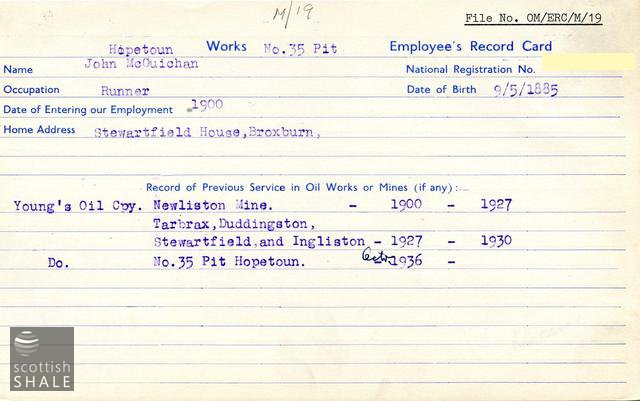 M/19
File No. OM/ERC/M/19
Hopetoun Works No.35 Pit Employee's Record Card
Name John McGuichan National Registration No.
Occupation Runner Date of Birth 9/5/1885
Date of Entering our Employment 1900
Home Address Stewartfield House,Broxburn,
Record of Previous Service in Oil Works or Mines (if any):—
Young's Oil Cpy. Newliston Mine. - 1900 - 1927
Tarbrax,Duddingston,
Stewartfield,and Ingliston - 1927 - 1930
Do. No.35 Pit Hopetoun. - 1936 -
scottish
SHALE